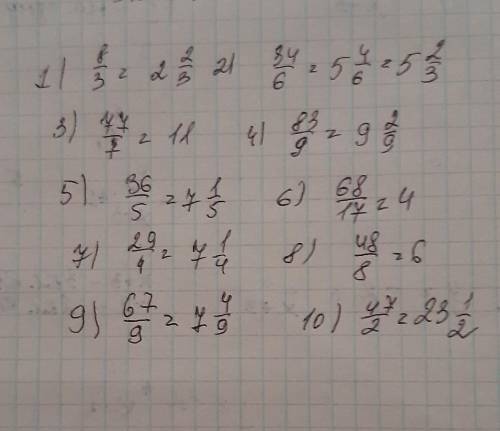 1) 8/3 = 2 2/3 2) 34/6 = 5 4/6 = 5 2/3
3) 77/7 = 11 4) 83/9 = 9 2/9
5) 36/5 = 7 1/5 6) 68/17 = 4
7) 29/4 = 7 1/4 8) 48/8 = 6
9) 67/9 = 7 4/9 10) 47/2 = 23 1/2